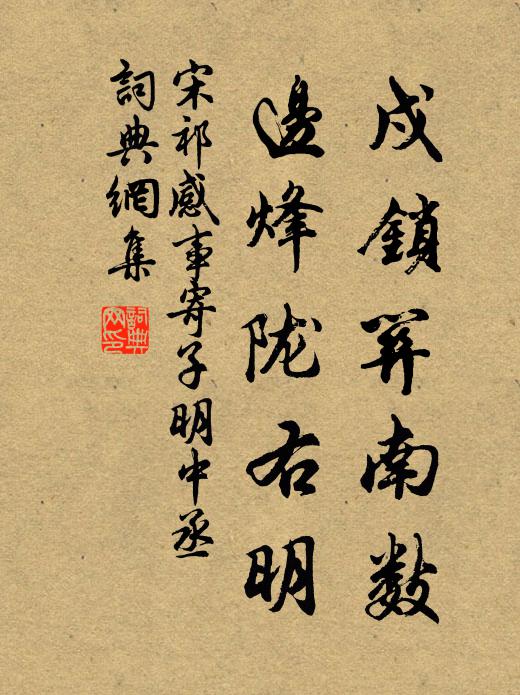 戍鎖關南數
邊烽陇右明
宋祁感事寄子明中丞
詞典網集
詞典网印